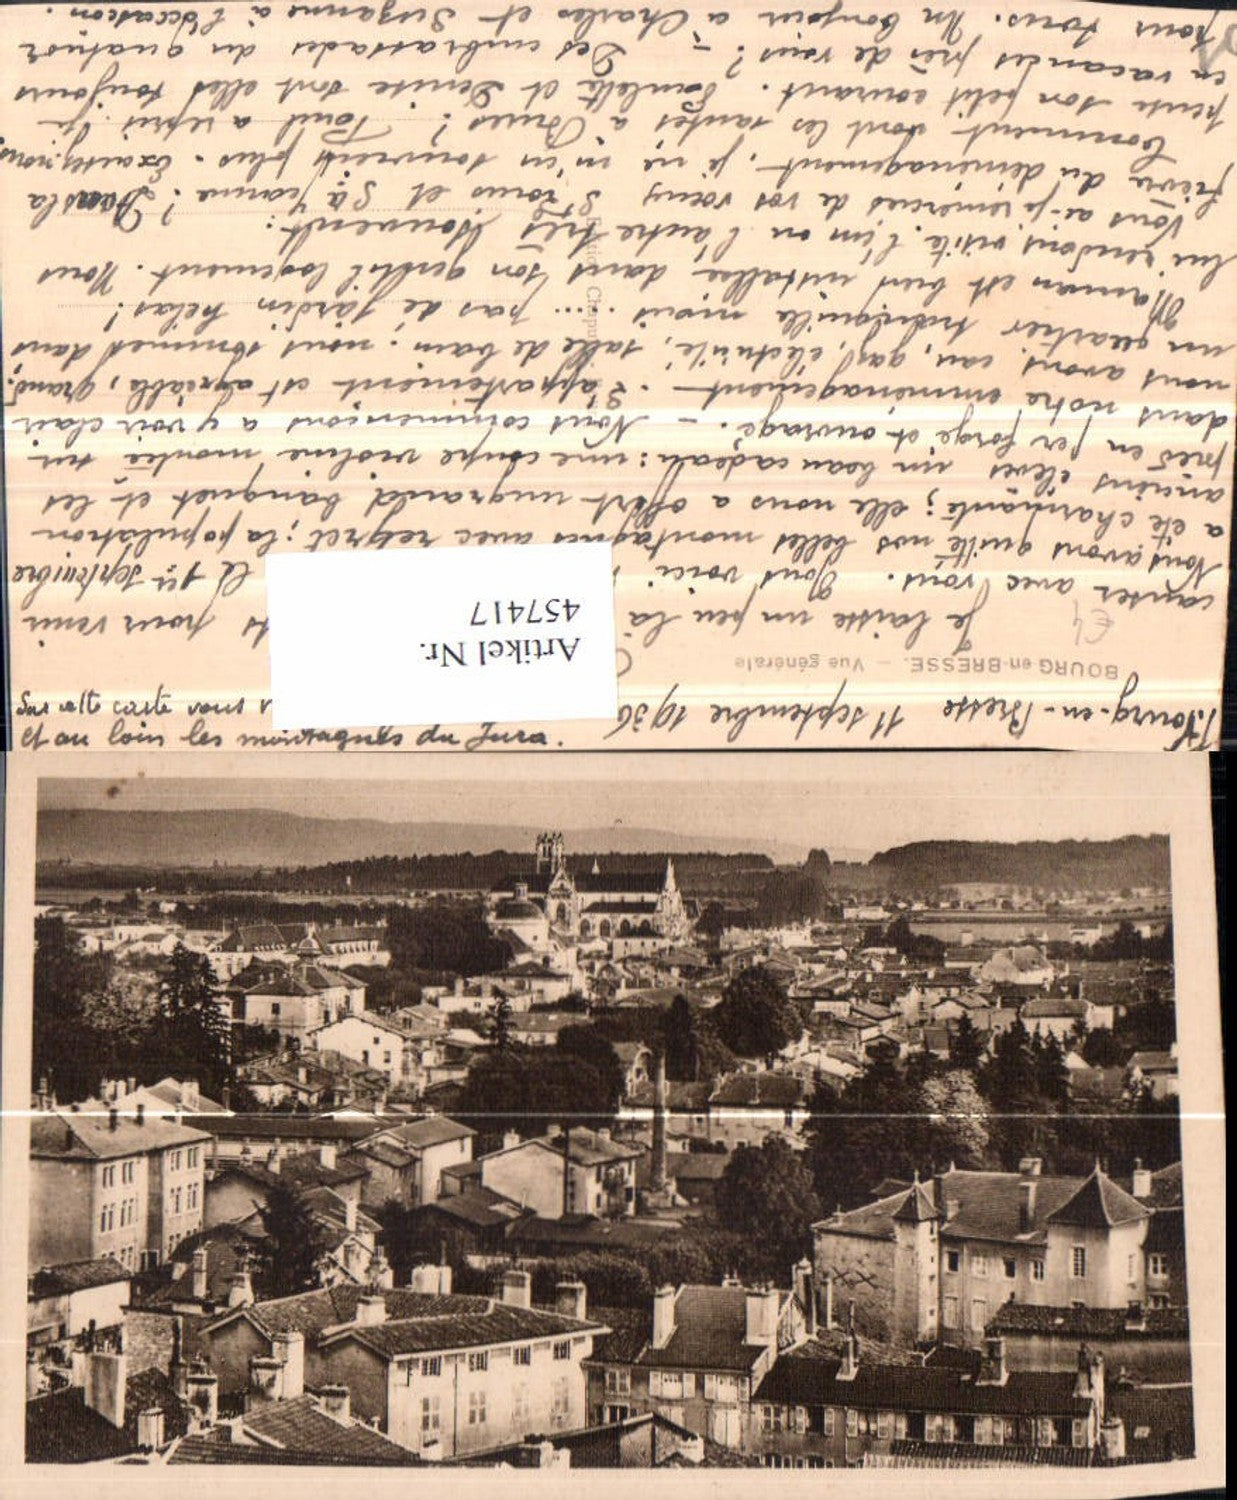 Bourg-en-Bresse 11 septembre 1936
BOURG-en-BRESSE. — Vue générale
Sur cette carte vous
et au loin les montagnes du Jura.
Artikel Nr.
457417
Je laisse un peu là pour venir
causer avec vous. Nous voici le 1er septembre
Nous avons quitté nos belles montagnes avec regret ; la population
a été charmante ; elle nous a offert un grand banquet et les
anciens élèves un beau cadeau : une coupe violine montée sur
pied en fer forgé et ouvragé. — Nous commençons à y voir clair
dans notre emménagement. L'appartement est agréable, grand ;
nous avons eau, gaz, électricité, salle de bain ; nous sommes dans
un quartier tranquille mais .... pas de jardin hélas !
Maman est bien installée dans son gentil logement. Nous
lui rendons visite l'un ou l'autre très souvent.
Vous ai-je remerciés de vos vœux St et à Jeanne ? Dans la
fièvre du déménagement, je ne m'en souviens plus. Excusez-nous
Comment vont les santés à ? Paul a repris
pente son petit courant. Paulette et Denise sont elles toujours
en vacances près de vous ? — Des embrassades du quatuor
pour tous. Un bonjour à Charles et Suzanne à l'occasion.
€4